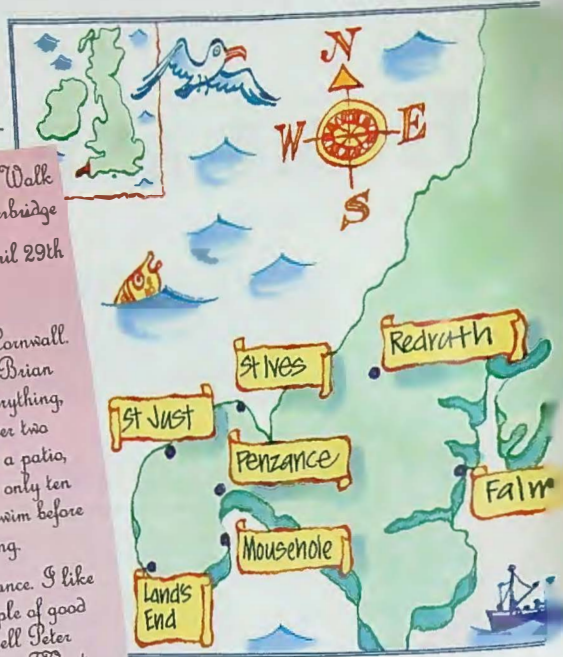 Walk
nbridge
il 29th
ornwall.
Brian
rything,
er two
a patio,
only ten
wim before
ng.
ance. I like
ple of good
ell Peter
N
W
E
S
St Ives
Redruth
St Just
Penzance
Falm
Mousehole
Land's
End